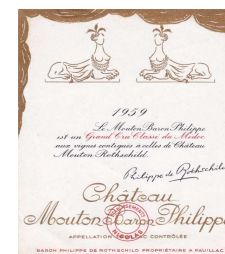 1959
Le Mouton Baron Philippe
est un Grand Cru Classé du Médoc
aux vignes contiguës à celles de Château
Mouton Rothschild.
Philippe de Rothschild
Château
Mouton Baron Philippe
APPELLATION PAUILLAC CONTRÔLÉE
NICOLAS
BARON PHILIPPE DE ROTHSCHILD PROPRIÉTAIRE A PAUILLAC